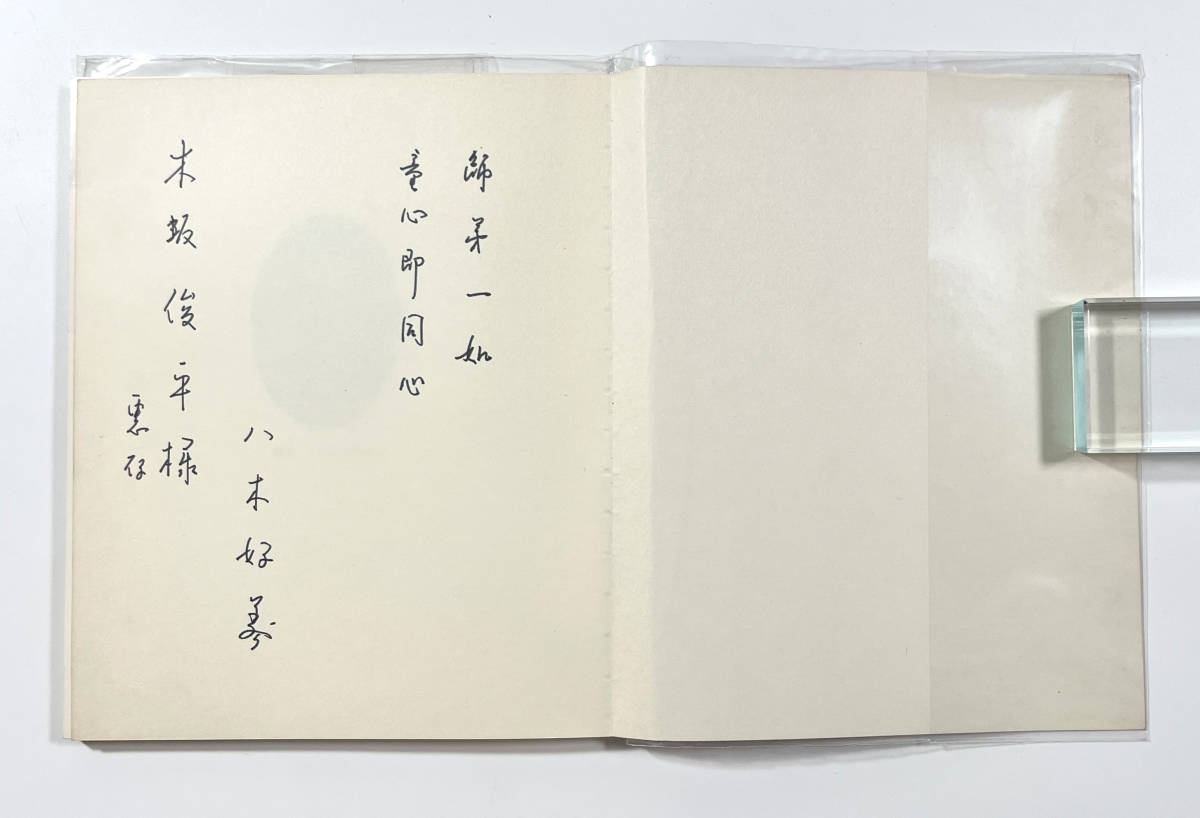 師弟一如
童心即同心
八木好美
木坂俊平様
恵存